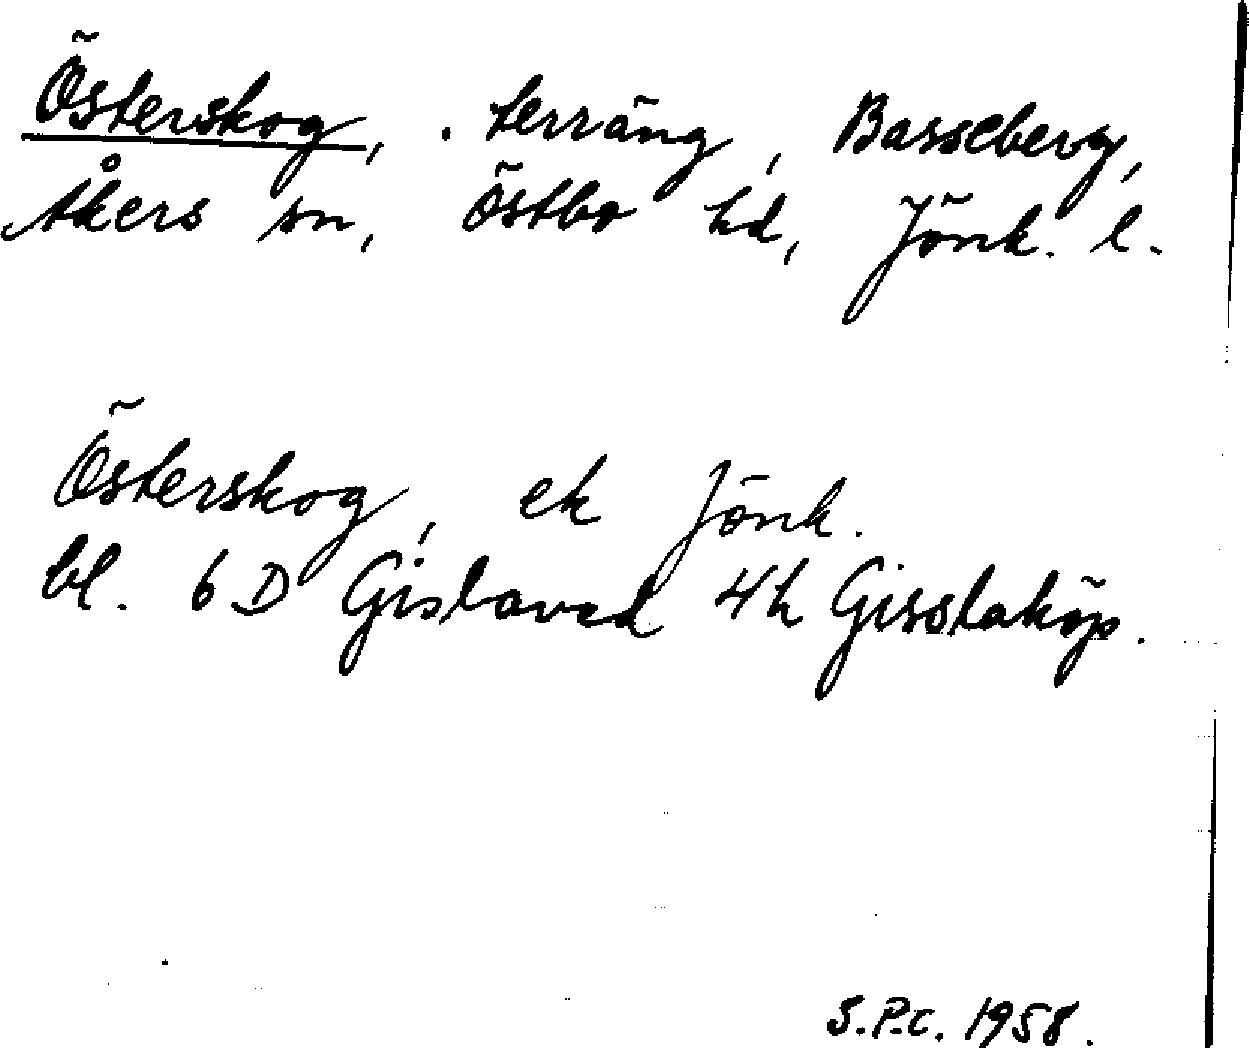 Österskog, . terräng, Basseberg,
Åkers sn, Östbo hd, Jönk. l.
Österskog, ek Jönk.
bl. 6 D Gislaved 4h Gisslaköp.
S.P.C. 1958.